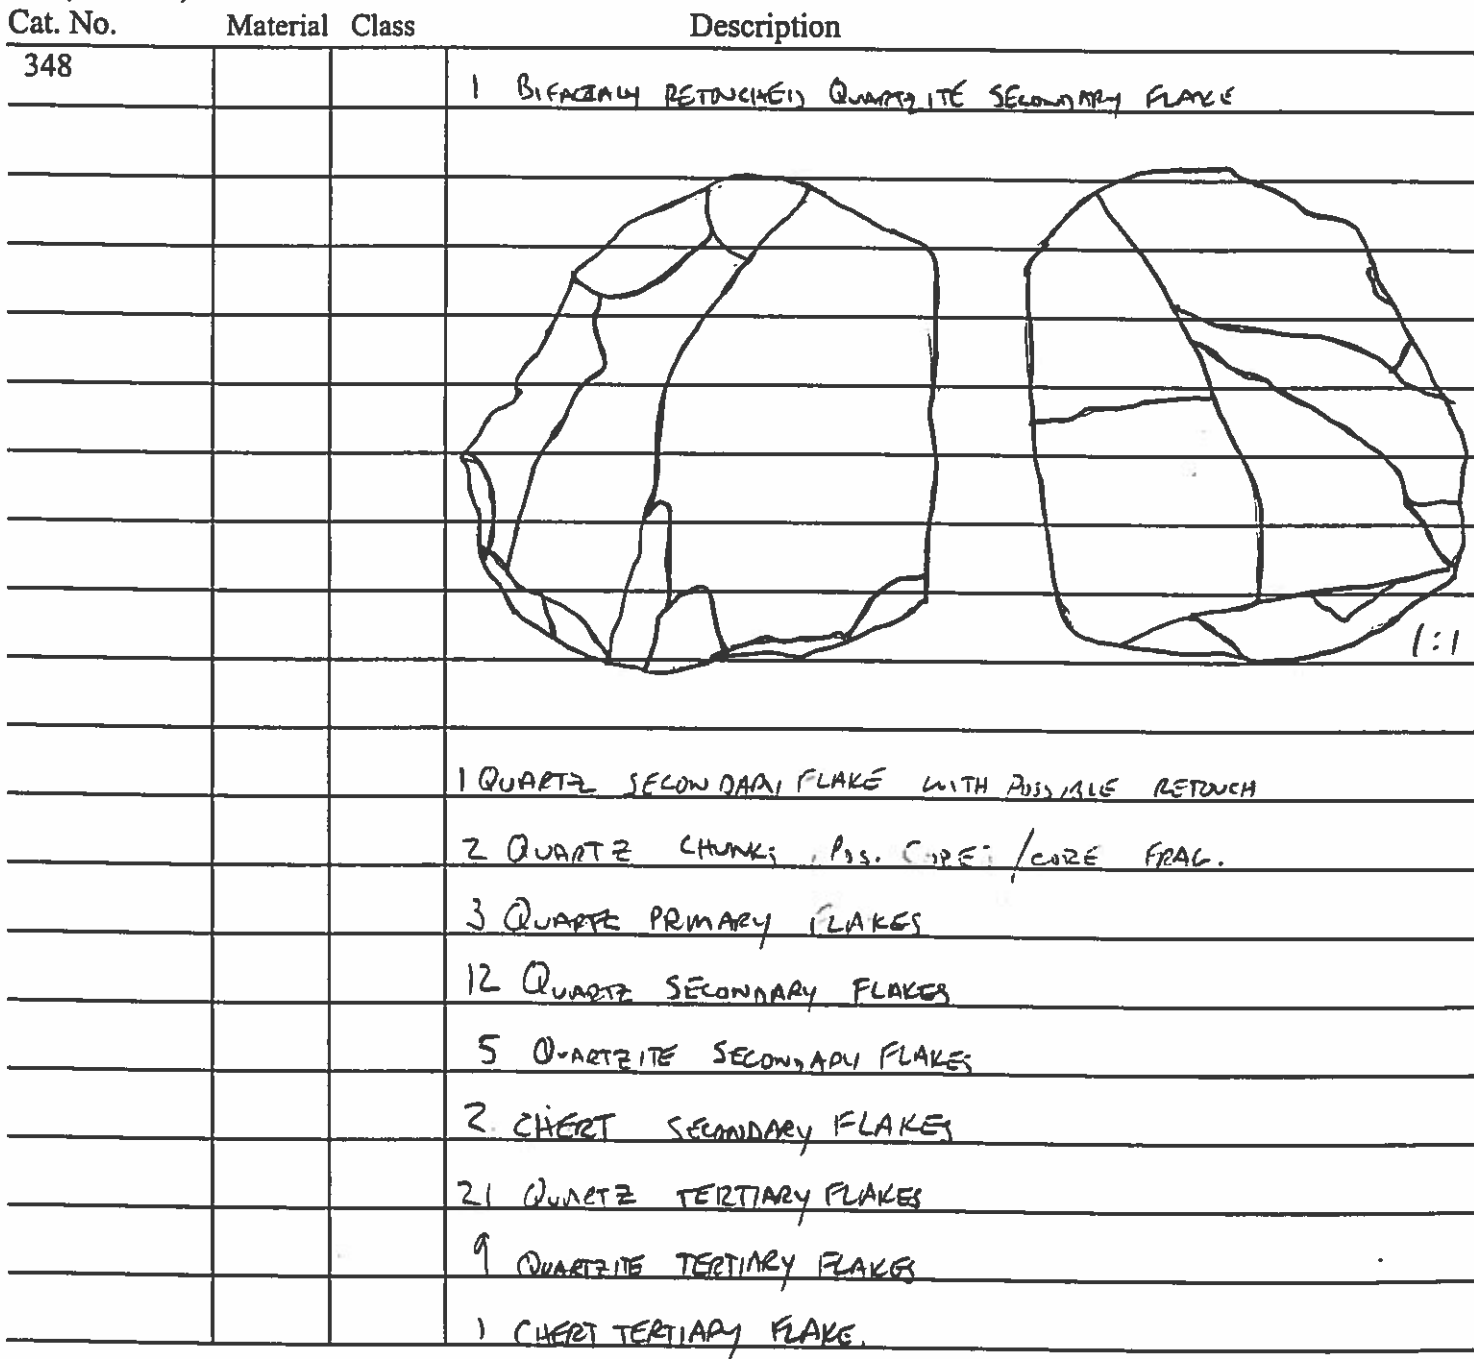 Cat. No. Material Class Description
348
1 BIFACIALLY RETOUCHED QUARTZITE SECONDARY FLAKE
1:1
1 QUARTZ SECONDARY FLAKE WITH POSSIBLE RETOUCH
2 QUARTZ CHUNKS, POSS. CORES/CORE FRAG.
3 QUARTZ PRIMARY FLAKES
12 QUARTZ SECONDARY FLAKES
5 QUARTZITE SECONDARY FLAKES
2 CHERT SECONDARY FLAKES
21 QUARTZ TERTIARY FLAKES
9 QUARTZITE TERTIARY FLAKES
1 CHERT TERTIARY FLAKE.